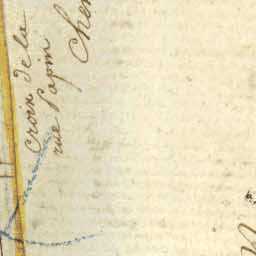 croix de la
rue Papin
Chem